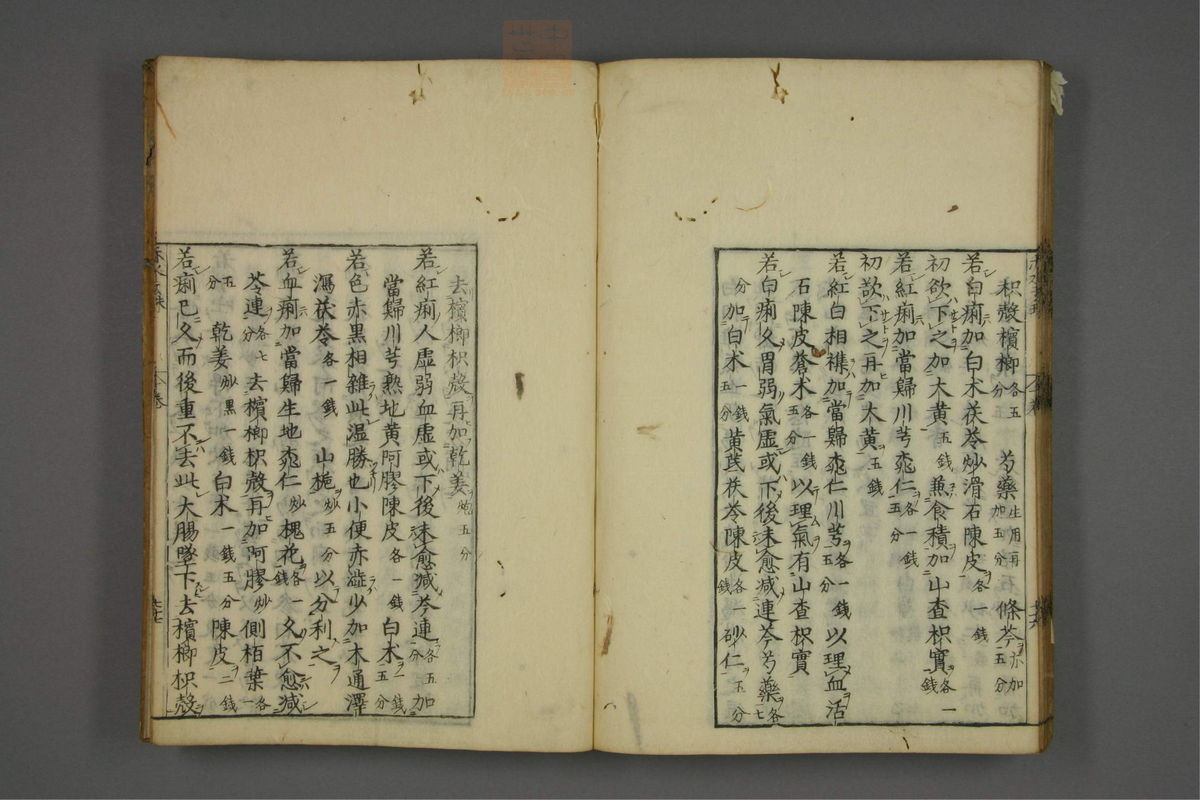 枳殻檳榔各五分 芍藥生用再加五分 條芩亦加五分
若白痢加白朮茯苓炒滑石陳皮各一錢
初欲下之加大黄五錢兼食積加山查枳實各一錢
若紅痢加當歸川芎桃仁各一錢五分
初欲下之再加大黄五錢
若紅白相襍加當歸桃仁川芎各一錢五分以理血活
石陳皮蒼术各一錢五分以理氣有山查枳實
若白痢久胃弱氣虚或下後未愈减連芩芍藥各七
分加白术一錢五分黄芪茯苓陳皮各一錢砂仁五分
去檳榔枳殻再加乾姜炮五分
若紅痢人虚弱血虚或下後未愈减芩連各五分加
當歸川芎熟地黄阿膠陳皮各一錢白术一錢五分
若色赤黒相雜此温勝也小便赤澁少加木通澤
瀉茯苓各一錢山梔炒五分以分利之
若血痢加當歸生地桃仁炒槐花各一錢久不愈减
芩連各七分去檳榔枳殻再加阿膠炒側栢葉各一
五分乾姜炒黒一錢白术一錢五分陳皮二錢
若痢已久而後重不去此大腸墜下去檳榔枳殻